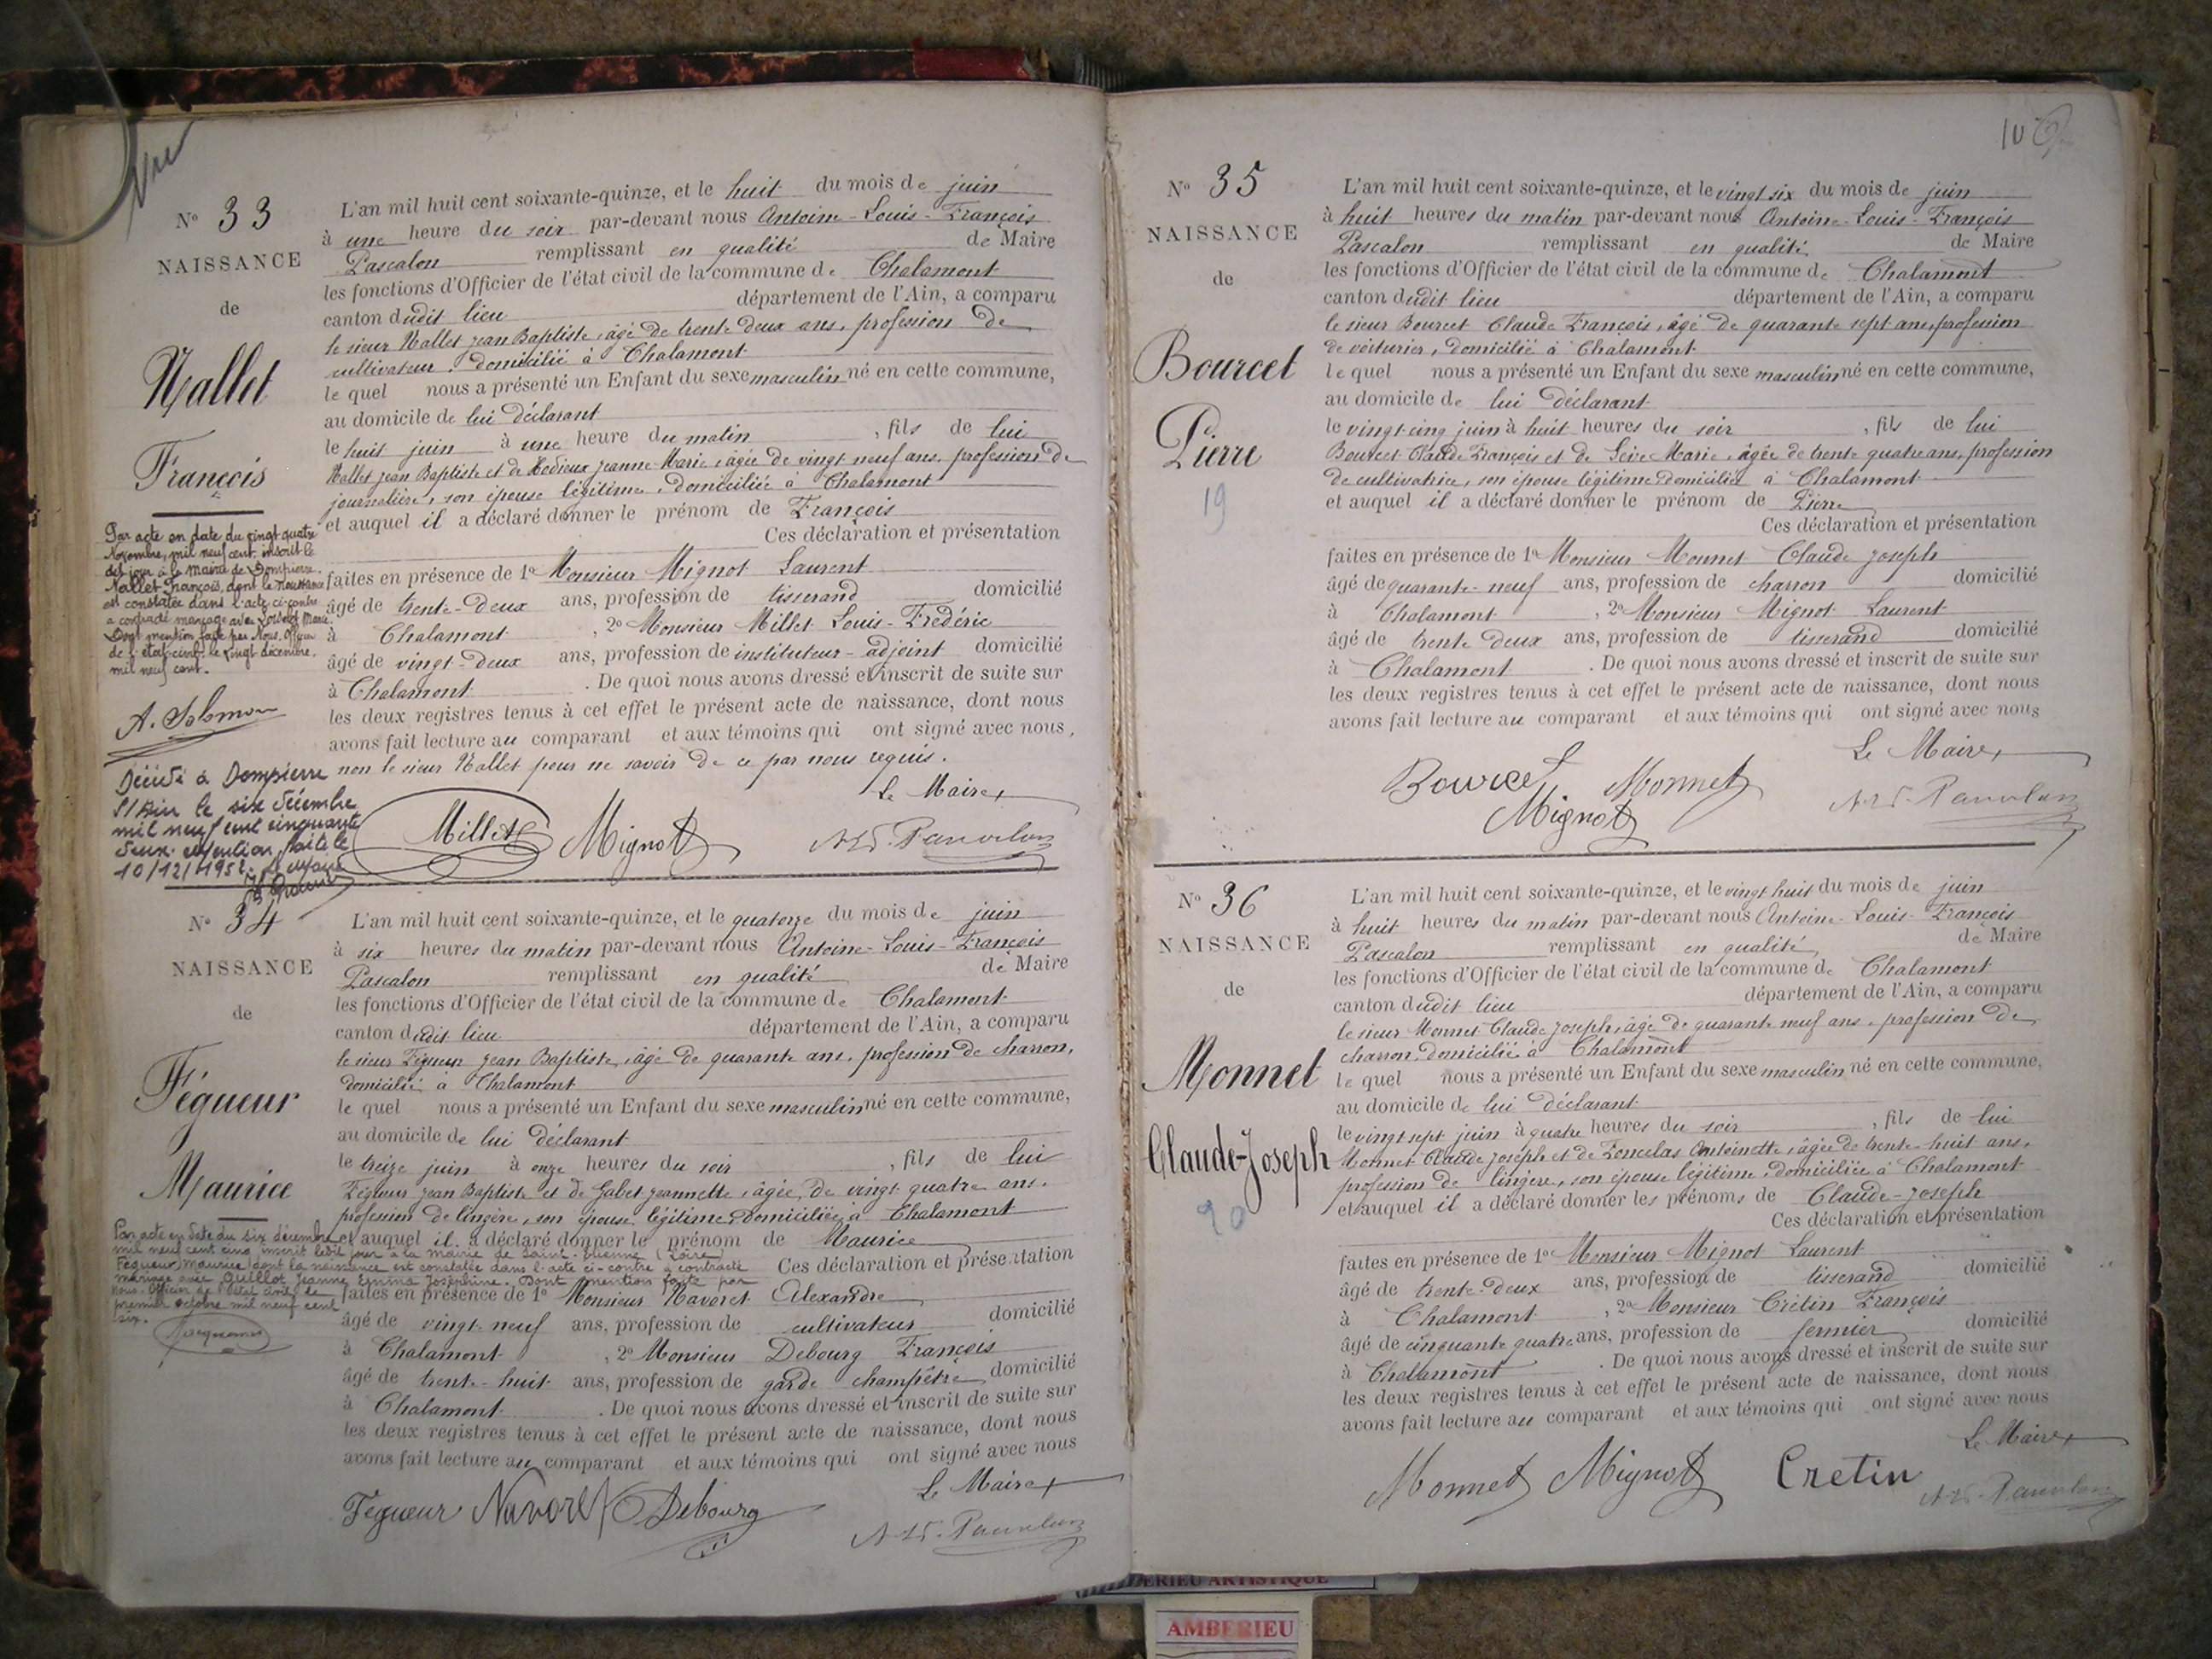 Vu
N° 33
NAISSANCE
de
Nallet
François
L'an mil huit cent soixante-quinze, et le huit du mois de juin
à une heure du soir par-devant nous Antoine-Louis-François
Pascalon remplissant en qualité de Maire
les fonctions d'Officier de l'état civil de la commune de Chalamont
canton dudit lieu département de l'Ain, a comparu
le sieur Nallet Jean Baptiste, âgé de trente deux ans, profession de
cultivateur, domicilié à Chalamont
le quel nous a présenté un Enfant du sexe masculin né en cette commune,
au domicile de lui déclarant
le huit juin à une heure du matin, fils de lui
Nallet Jean Baptiste et de Jeanne-Marie, âgée de vingt neuf ans, profession de
journalière, son épouse légitime, domiciliée à Chalamont
et auquel il a déclaré donner le prénom de François
Ces déclaration et présentation
faites en présence de 1° Monsieur Mignot Laurent
âgé de trente-deux ans, profession de tisserand domicilié
à Chalamont, 2° Monsieur Millet Louis-Frédéric
âgé de vingt-deux ans, profession de instituteur-adjoint domicilié
à Chalamont. De quoi nous avons dressé et inscrit de suite sur
les deux registres tenus à cet effet le présent acte de naissance, dont nous
avons fait lecture au comparant et aux témoins qui ont signé avec nous,
non le sieur Nallet pour ne savoir de ce par nous requis.
Le Maire,
Millet Mignot
Par acte en date du vingt quatre
Novembre, mil neuf cent, inscrit le
dit jour à la Mairie de Dompierre
Nallet François, dont la naissance
est constatée dans l'acte ci-contre
a contracté mariage avec Marie.
Dont mention faite par Nous, Officier
de l'état-civil, le vingt décembre,
mil neuf cent.
A. Salomon
Décédé à Dompierre
S/Ain le six décembre
mil neuf cent cinquante
deux. mention faite le
10/12/1952. Le Maire
N° 34
NAISSANCE
de
Fégueur
Maurice
L'an mil huit cent soixante-quinze, et le quatorze du mois de juin
à six heures du matin par-devant nous Antoine-Louis-François
Pascalon remplissant en qualité de Maire
les fonctions d'Officier de l'état civil de la commune de Chalamont
canton dudit lieu département de l'Ain, a comparu
le sieur Fégueur Jean Baptiste, âgé de quarante ans, profession de charron,
domicilié à Chalamont
le quel nous a présenté un Enfant du sexe masculin né en cette commune,
au domicile de lui déclarant
le treize juin à onze heures du soir, fils de lui
Fégueur Jean Baptiste et de Gabet Jeannette, âgée de vingt quatre ans,
profession de lingère, son épouse légitime, domiciliée à Chalamont
et auquel il a déclaré donner le prénom de Maurice
Ces déclaration et présentation
faites en présence de 1° Monsieur Navoret Alexandre
âgé de vingt-neuf ans, profession de cultivateur domicilié
à Chalamont, 2° Monsieur Debourg François
âgé de trente-huit ans, profession de garde champêtre domicilié
à Chalamont. De quoi nous avons dressé et inscrit de suite sur
les deux registres tenus à cet effet le présent acte de naissance, dont nous
avons fait lecture au comparant et aux témoins qui ont signé avec nous
Le Maire
Fegueur Navoret Debourg
Par acte en date du six décembre
mil neuf cent cinq inscrit ledit jour à la mairie de Saint-Etienne (Loire)
Fégueur Maurice dont la naissance est constatée dans l'acte ci-contre a contracté
mariage avec Guillot Jeanne Emma Joséphine. Dont mention faite par
nous, Officier de l'état civil le
premier octobre mil neuf cent
six.
N° 35
NAISSANCE
de
Bourcet
Pierre
19
L'an mil huit cent soixante-quinze, et le vingt six du mois de juin
à huit heures du matin par-devant nous Antoine-Louis-François
Pascalon remplissant en qualité de Maire
les fonctions d'Officier de l'état civil de la commune de Chalamont
canton dudit lieu département de l'Ain, a comparu
le sieur Bourcet Claude François, âgé de quarante sept ans, profession
de voiturier, domicilié à Chalamont
le quel nous a présenté un Enfant du sexe masculin né en cette commune,
au domicile de lui déclarant
le vingt cinq juin à huit heures du soir, fils de lui
Bourcet Claude François et de Marie, âgée de trente quatre ans, profession
de cultivatrice, son épouse légitime domiciliée à Chalamont
et auquel il a déclaré donner le prénom de Pierre
Ces déclaration et présentation
faites en présence de 1° Monsieur Monnet Claude Joseph
âgé de quarante-neuf ans, profession de charron domicilié
à Chalamont, 2° Monsieur Mignot Laurent
âgé de trente deux ans, profession de tisserand domicilié
à Chalamont. De quoi nous avons dressé et inscrit de suite sur
les deux registres tenus à cet effet le présent acte de naissance, dont nous
avons fait lecture au comparant et aux témoins qui ont signé avec nous
Le Maire,
Bourcet Monnet
Mignot
N° 36
NAISSANCE
de
Monnet
Claude-Joseph
20
L'an mil huit cent soixante-quinze, et le vingt huit du mois de juin
à huit heures du matin par-devant nous Antoine-Louis-François
Pascalon remplissant en qualité de Maire
les fonctions d'Officier de l'état civil de la commune de Chalamont
canton dudit lieu département de l'Ain, a comparu
le sieur Monnet Claude Joseph, âgé de quarante neuf ans, profession de
charron, domicilié à Chalamont
le quel nous a présenté un Enfant du sexe masculin né en cette commune,
au domicile de lui déclarant
le vingt sept juin à quatre heures du soir, fils de lui
Monnet Claude Joseph et de Antoinette, âgée de trente-huit ans,
profession de lingère, son épouse légitime, domiciliée à Chalamont
et auquel il a déclaré donner les prénoms de Claude-Joseph
Ces déclaration et présentation
faites en présence de 1° Monsieur Mignot Laurent
âgé de trente-deux ans, profession de tisserand domicilié
à Chalamont, 2° Monsieur Crétin François
âgé de cinquante quatre ans, profession de fermier domicilié
à Chalamont. De quoi nous avons dressé et inscrit de suite sur
les deux registres tenus à cet effet le présent acte de naissance, dont nous
avons fait lecture au comparant et aux témoins qui ont signé avec nous
Le Maire,
Monnet Mignot Cretin
AMBERIEU ARTISTIQUE
AMBERIEU